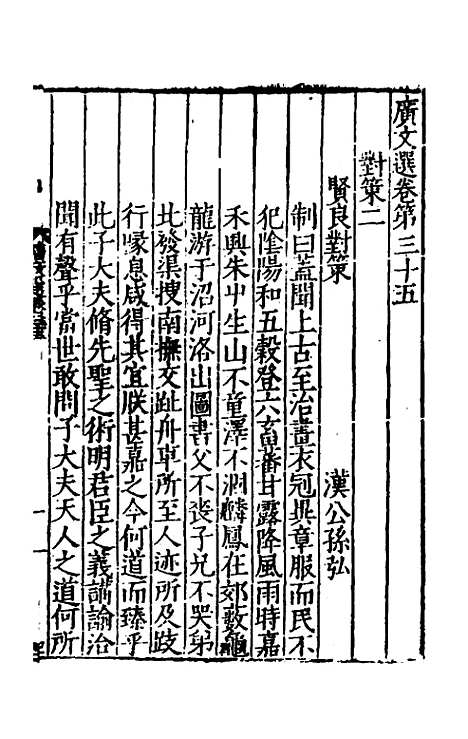 廣文選卷第三十五
對策二
賢良對策 漢公孫弘
制曰蓋聞上古至治畫衣冠異章服而民不
犯陰陽和五穀登六畜蕃甘露降風雨時嘉
禾興朱屮生山不童澤不涸麟鳳在郊藪龜
龍游于沼河洛出圖書父不喪子兄不哭弟
北發渠搜南撫交趾舟車所至人迹所及跂
行喙息咸得其宜朕甚嘉之今何道而臻乎
此子大夫脩先聖之術明君臣之義講論洽
聞有聲乎當世敢問子大夫天人之道何所